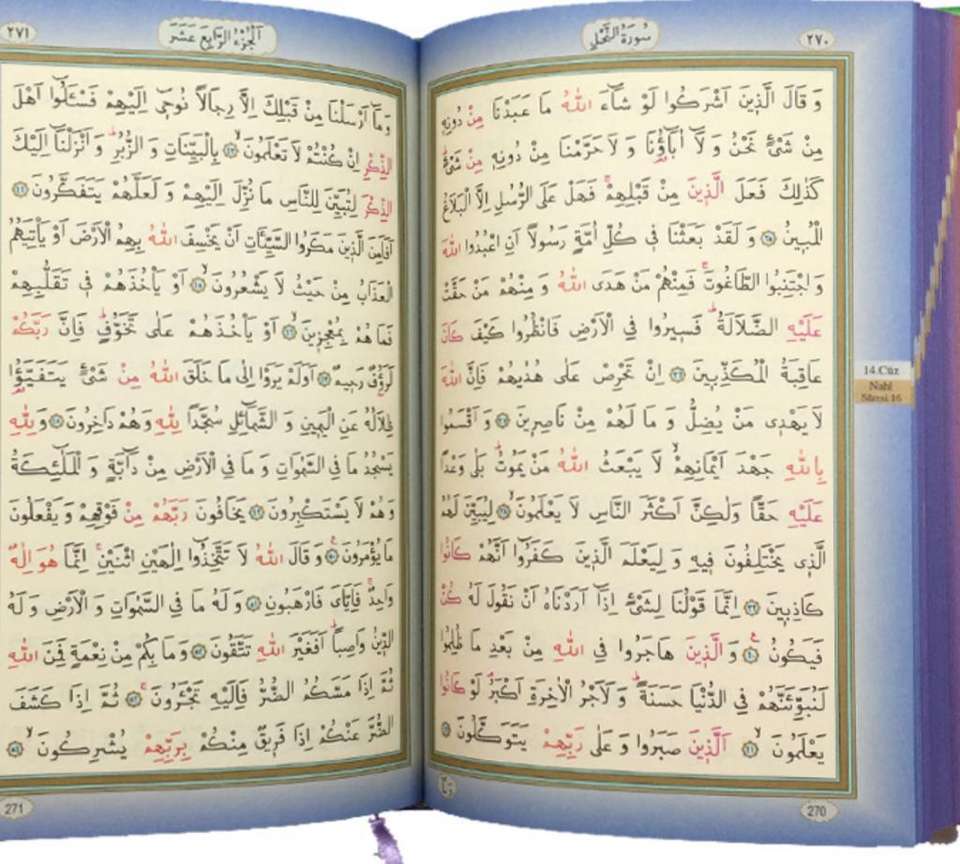 سُورَةُ النَّحْلِ
٢٧٠
وَ قَالَ الَّذِينَ اَشْرَكُوا لَوْ شَٓاءَ اللّٰهُ مَا عَبَدْنَا مِنْ دُونِه۪
مِنْ شَيْءٍ نَحْنُ وَ لَٓا اٰبَٓاؤُ۬نَا وَ لَا حَرَّمْنَا مِنْ دُونِه۪ مِنْ شَيْءٍۜ
كَذٰلِكَ فَعَلَ الَّذ۪ينَ مِنْ قَبْلِهِمْۚ فَهَلْ عَلَى الرُّسُلِ اِلَّا الْبَلَاغُ
الْمُب۪ينُ ﴿٣٥﴾ وَ لَقَدْ بَعَثْنَا ف۪ي كُلِّ اُمَّةٍ رَسُولًا اَنِ اعْبُدُوا اللّٰهَ
وَ اجْتَنِبُوا الطَّاغُوتَۚ فَمِنْهُمْ مَنْ هَدَى اللّٰهُ وَ مِنْهُمْ مَنْ حَقَّتْ
عَلَيْهِ الضَّلَالَةُۜ فَس۪يرُوا فِي الْاَرْضِ فَانْظُرُوا كَيْفَ كَانَ
عَاقِبَةُ الْمُكَذِّب۪ينَ ﴿٣٦﴾ اِنْ تَحْرِصْ عَلٰى هُدٰيهُمْ فَاِنَّ اللّٰهَ
لَا يَهْد۪ي مَنْ يُضِلُّ وَ مَا لَهُمْ مِنْ نَاصِر۪ينَ ﴿٣٧﴾ وَ اَقْسَمُوا
بِاللّٰهِ جَهْدَ اَيْمَانِهِمْۙ لَا يَبْعَثُ اللّٰهُ مَنْ يَمُوتُۜ بَلٰى وَعْدًا
عَلَيْهِ حَقًّا وَلٰكِنَّ اَكْثَرَ النَّاسِ لَا يَعْلَمُونَۙ ﴿٣٨﴾ لِيُبَيِّنَ لَهُمُ
الَّذ۪ي يَخْتَلِفُونَ ف۪يهِ وَ لِيَعْلَمَ الَّذ۪ينَ كَفَرُٓوا اَنَّهُمْ كَانُوا
كَاذِب۪ينَ ﴿٣٩﴾ اِنَّمَا قَوْلُنَا لِشَيْءٍ اِذَٓا اَرَدْنَاهُ اَنْ نَقُولَ لَهُ كُنْ
فَيَكُونُ۟ ﴿٤٠﴾ وَ الَّذ۪ينَ هَاجَرُوا فِي اللّٰهِ مِنْ بَعْدِ مَا ظُلِمُوا
لَنُبَوِّئَنَّهُمْ فِي الدُّنْيَا حَسَنَةًۜ وَ لَاَجْرُ الْاٰخِرَةِ اَكْبَرُۢ لَوْ كَانُوا
يَعْلَمُونَۙ ﴿٤١﴾ اَلَّذ۪ينَ صَبَرُوا وَ عَلٰى رَبِّهِمْ يَتَوَكَّلُونَ ﴿٤٢﴾
270
14.Cüz
Nahl
Sûresi.16
٢٧١
اَلْجُزْءُ الرَّابِعَ عَشَرَ
وَمَٓا اَرْسَلْنَا مِنْ قَبْلِكَ اِلَّا رِجَالًا نُوح۪ٓي اِلَيْهِمْ فَسْـَٔلُٓوا اَهْلَ
الذِّكْرِ اِنْ كُنْتُمْ لَا تَعْلَمُونَۙ ﴿٤٣﴾ بِالْبَيِّنَاتِ وَ الزُّبُرِۜ وَ اَنْزَلْنَٓا اِلَيْكَ
الذِّكْرَ لِتُبَيِّنَ لِلنَّاسِ مَا نُزِّلَ اِلَيْهِمْ وَ لَعَلَّهُمْ يَتَفَكَّرُونَ ﴿٤٤﴾
اَفَاَمِنَ الَّذ۪ينَ مَكَرُوا السَّيِّـَٔاتِ اَنْ يَخْسِفَ اللّٰهُ بِهِمُ الْاَرْضَ اَوْ يَأْتِيَهُمُ
الْعَذَابُ مِنْ حَيْثُ لَا يَشْعُرُونَۙ ﴿٤٥﴾ اَوْ يَأْخُذَهُمْ ف۪ي تَقَلُّبِهِمْ
فَمَا هُمْ بِمُعْجِز۪ينَۙ ﴿٤٦﴾ اَوْ يَأْخُذَهُمْ عَلٰى تَخَوُّفٍۜ فَاِنَّ رَبَّكُمْ
لَرَؤُ۫فٌ رَح۪يمٌ ﴿٤٧﴾ اَوَلَمْ يَرَوْا اِلٰى مَا خَلَقَ اللّٰهُ مِنْ شَيْءٍ يَتَفَيَّؤُ۬ا
ظِلَالُهُ عَنِ الْيَم۪ينِ وَ الشَّمَٓائِلِ سُجَّدًا لِلّٰهِ وَهُمْ دَاخِرُونَ ﴿٤٨﴾ وَ لِلّٰهِ
يَسْجُدُ مَا فِي السَّمٰوَاتِ وَ مَا فِي الْاَرْضِ مِنْ دَٓابَّةٍ وَ الْمَلٰٓئِكَةُ
وَهُمْ لَا يَسْتَكْبِرُونَ ﴿٤٩﴾ يَخَافُونَ رَبَّهُمْ مِنْ فَوْقِهِمْ وَ يَفْعَلُونَ
مَا يُؤْمَرُونَ۟ ﴿٥٠﴾ وَ قَالَ اللّٰهُ لَا تَتَّخِذُٓوا اِلٰهَيْنِ اثْنَيْنِۚ اِنَّمَا هُوَ اِلٰهٌ
وَاحِدٌۚ فَاِيَّايَ فَارْهَبُونِ ﴿٥١﴾ وَ لَهُ مَا فِي السَّمٰوَاتِ وَ الْاَرْضِ وَ لَهُ
الدّ۪ينُ وَاصِبًاۜ اَفَغَيْرَ اللّٰهِ تَتَّقُونَ ﴿٥٢﴾ وَ مَا بِكُمْ مِنْ نِعْمَةٍ فَمِنَ اللّٰهِ
ثُمَّ اِذَا مَسَّكُمُ الضُّرُّ فَاِلَيْهِ تَجْـَٔرُونَۚ ﴿٥٣﴾ ثُمَّ اِذَا كَشَفَ
الضُّرَّ عَنْكُمْ اِذَا فَر۪يقٌ مِنْكُمْ بِرَبِّهِمْ يُشْرِكُونَۙ ﴿٥٤﴾
271